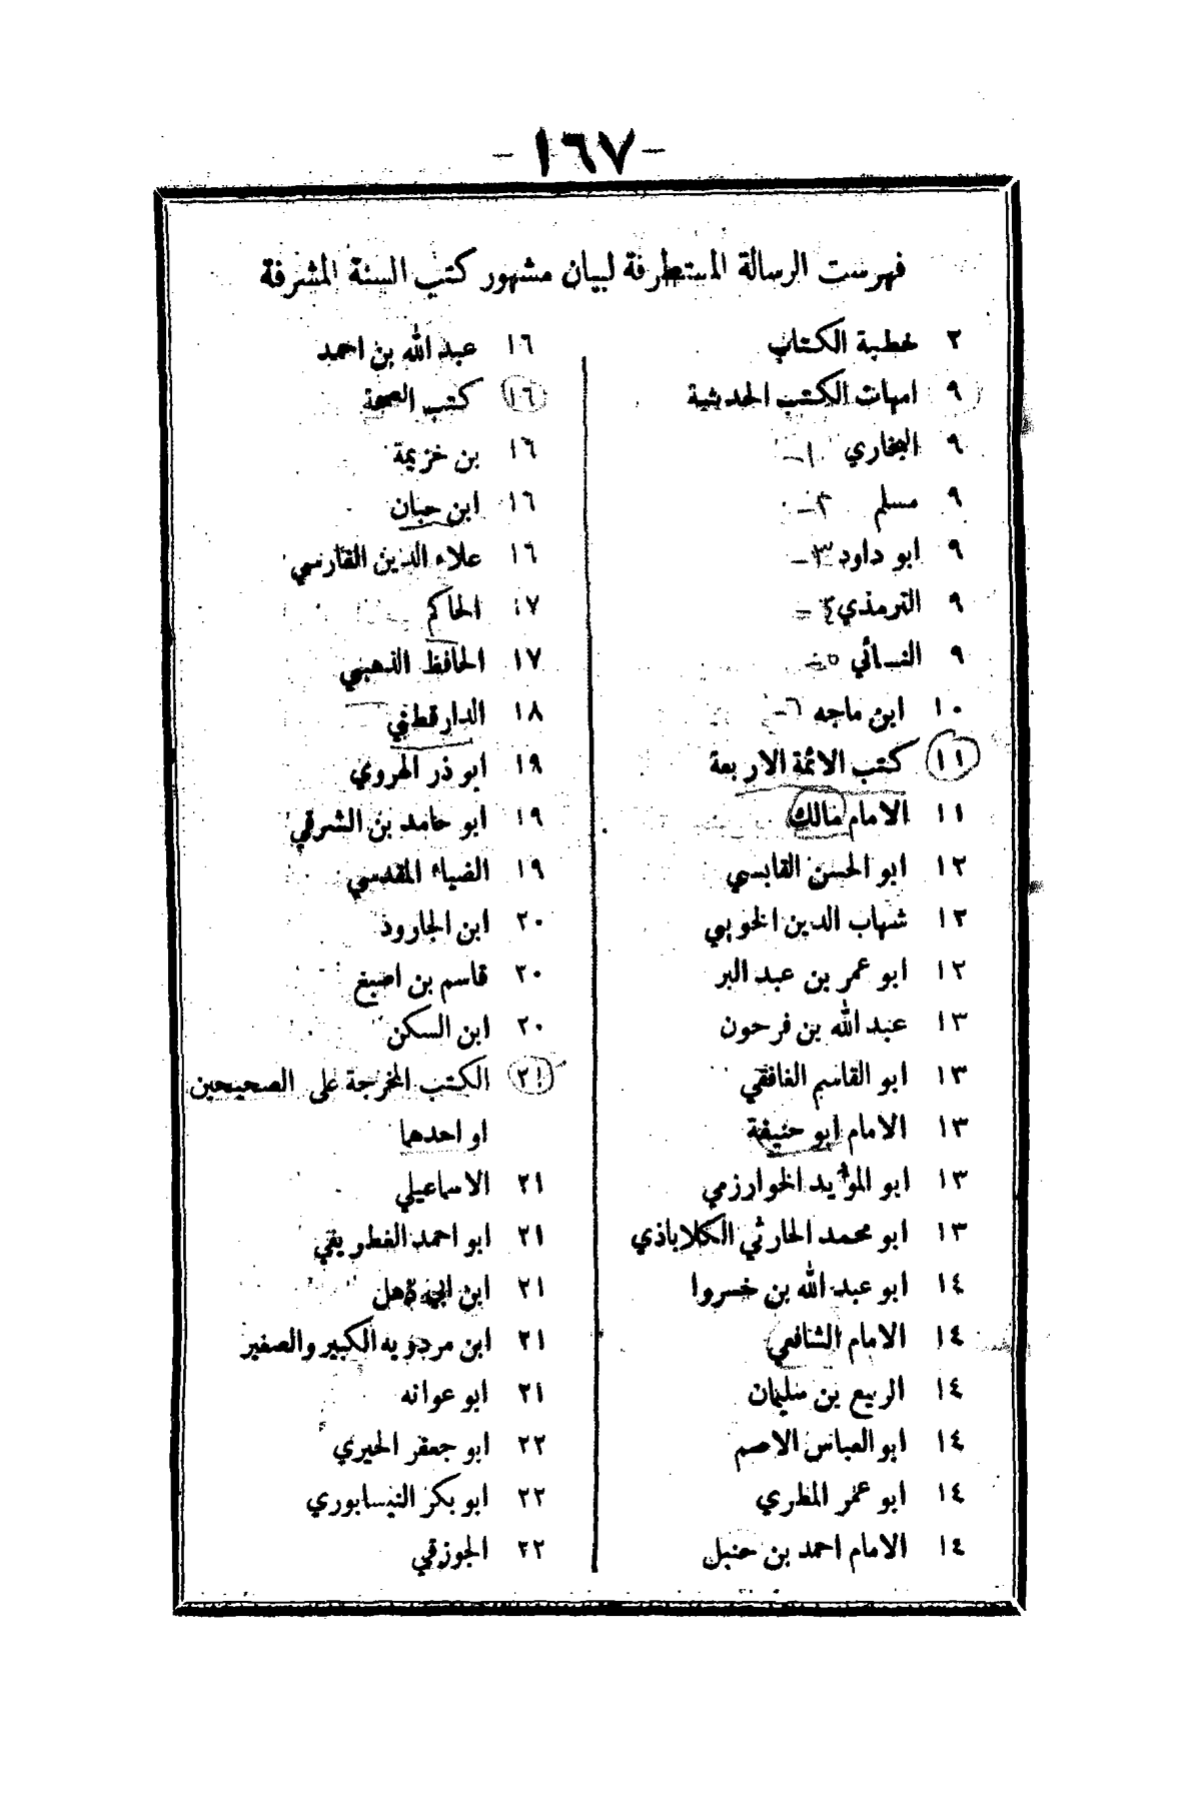 -١٦٧-
فهرست الرسالة المستطرفة لبيان مشهور كتب السنة المشرفة
٢ خطبة الكتاب
٩ امهات الكتب الحديثية
٩ البخاري ١-
٩ مسلم ٢-
٩ ابو داود ٣-
٩ الترمذي ٤-
٩ النسائي ٥-
١٠ ابن ماجه ٦-
١١ كتب الائمة الاربعة
١١ الامام مالك
١٢ ابو الحسن القابسي
١٢ شهاب الدين الخوبي
١٢ ابو عمر بن عبد البر
١٣ عبد الله بن فرحون
١٣ ابو القاسم الغافقي
١٣ الامام ابو حنيفة
١٣ ابو المؤيد الخوارزمي
١٣ ابو محمد الحارثي الكلاباذي
١٤ ابو عبد الله بن خسروا
١٤ الامام الشافعي
١٤ الربيع بن سليمان
١٤ ابو العباس الاصم
١٤ ابو عمر المطري
١٤ الامام احمد بن حنبل
١٦ عبد الله بن احمد
١٦ كتب الصحة
١٦ بن خزيمة
١٦ ابن حبان
١٦ علاء الدين الفارسي
١٧ الحاكم
١٧ الحافظ الذهبي
١٨ الدارقطني
١٩ ابو ذر الهروي
١٩ ابو حامد بن الشرقي
١٩ الضياء المقدسي
٢٠ ابن الجارود
٢٠ قاسم بن اصبغ
٢٠ ابن السكن
٢١ الكتب المخرجة على الصحيحين
او احدهما
٢١ الاسماعيلي
٢١ ابو احمد الغطريفي
٢١ ابن ابي ذهل
٢١ ابن مردويه الكبير والصغير
٢١ ابو عوانه
٢٢ ابو جعفر الحيري
٢٢ ابو بكر النيسابوري
٢٢ الجوزقي